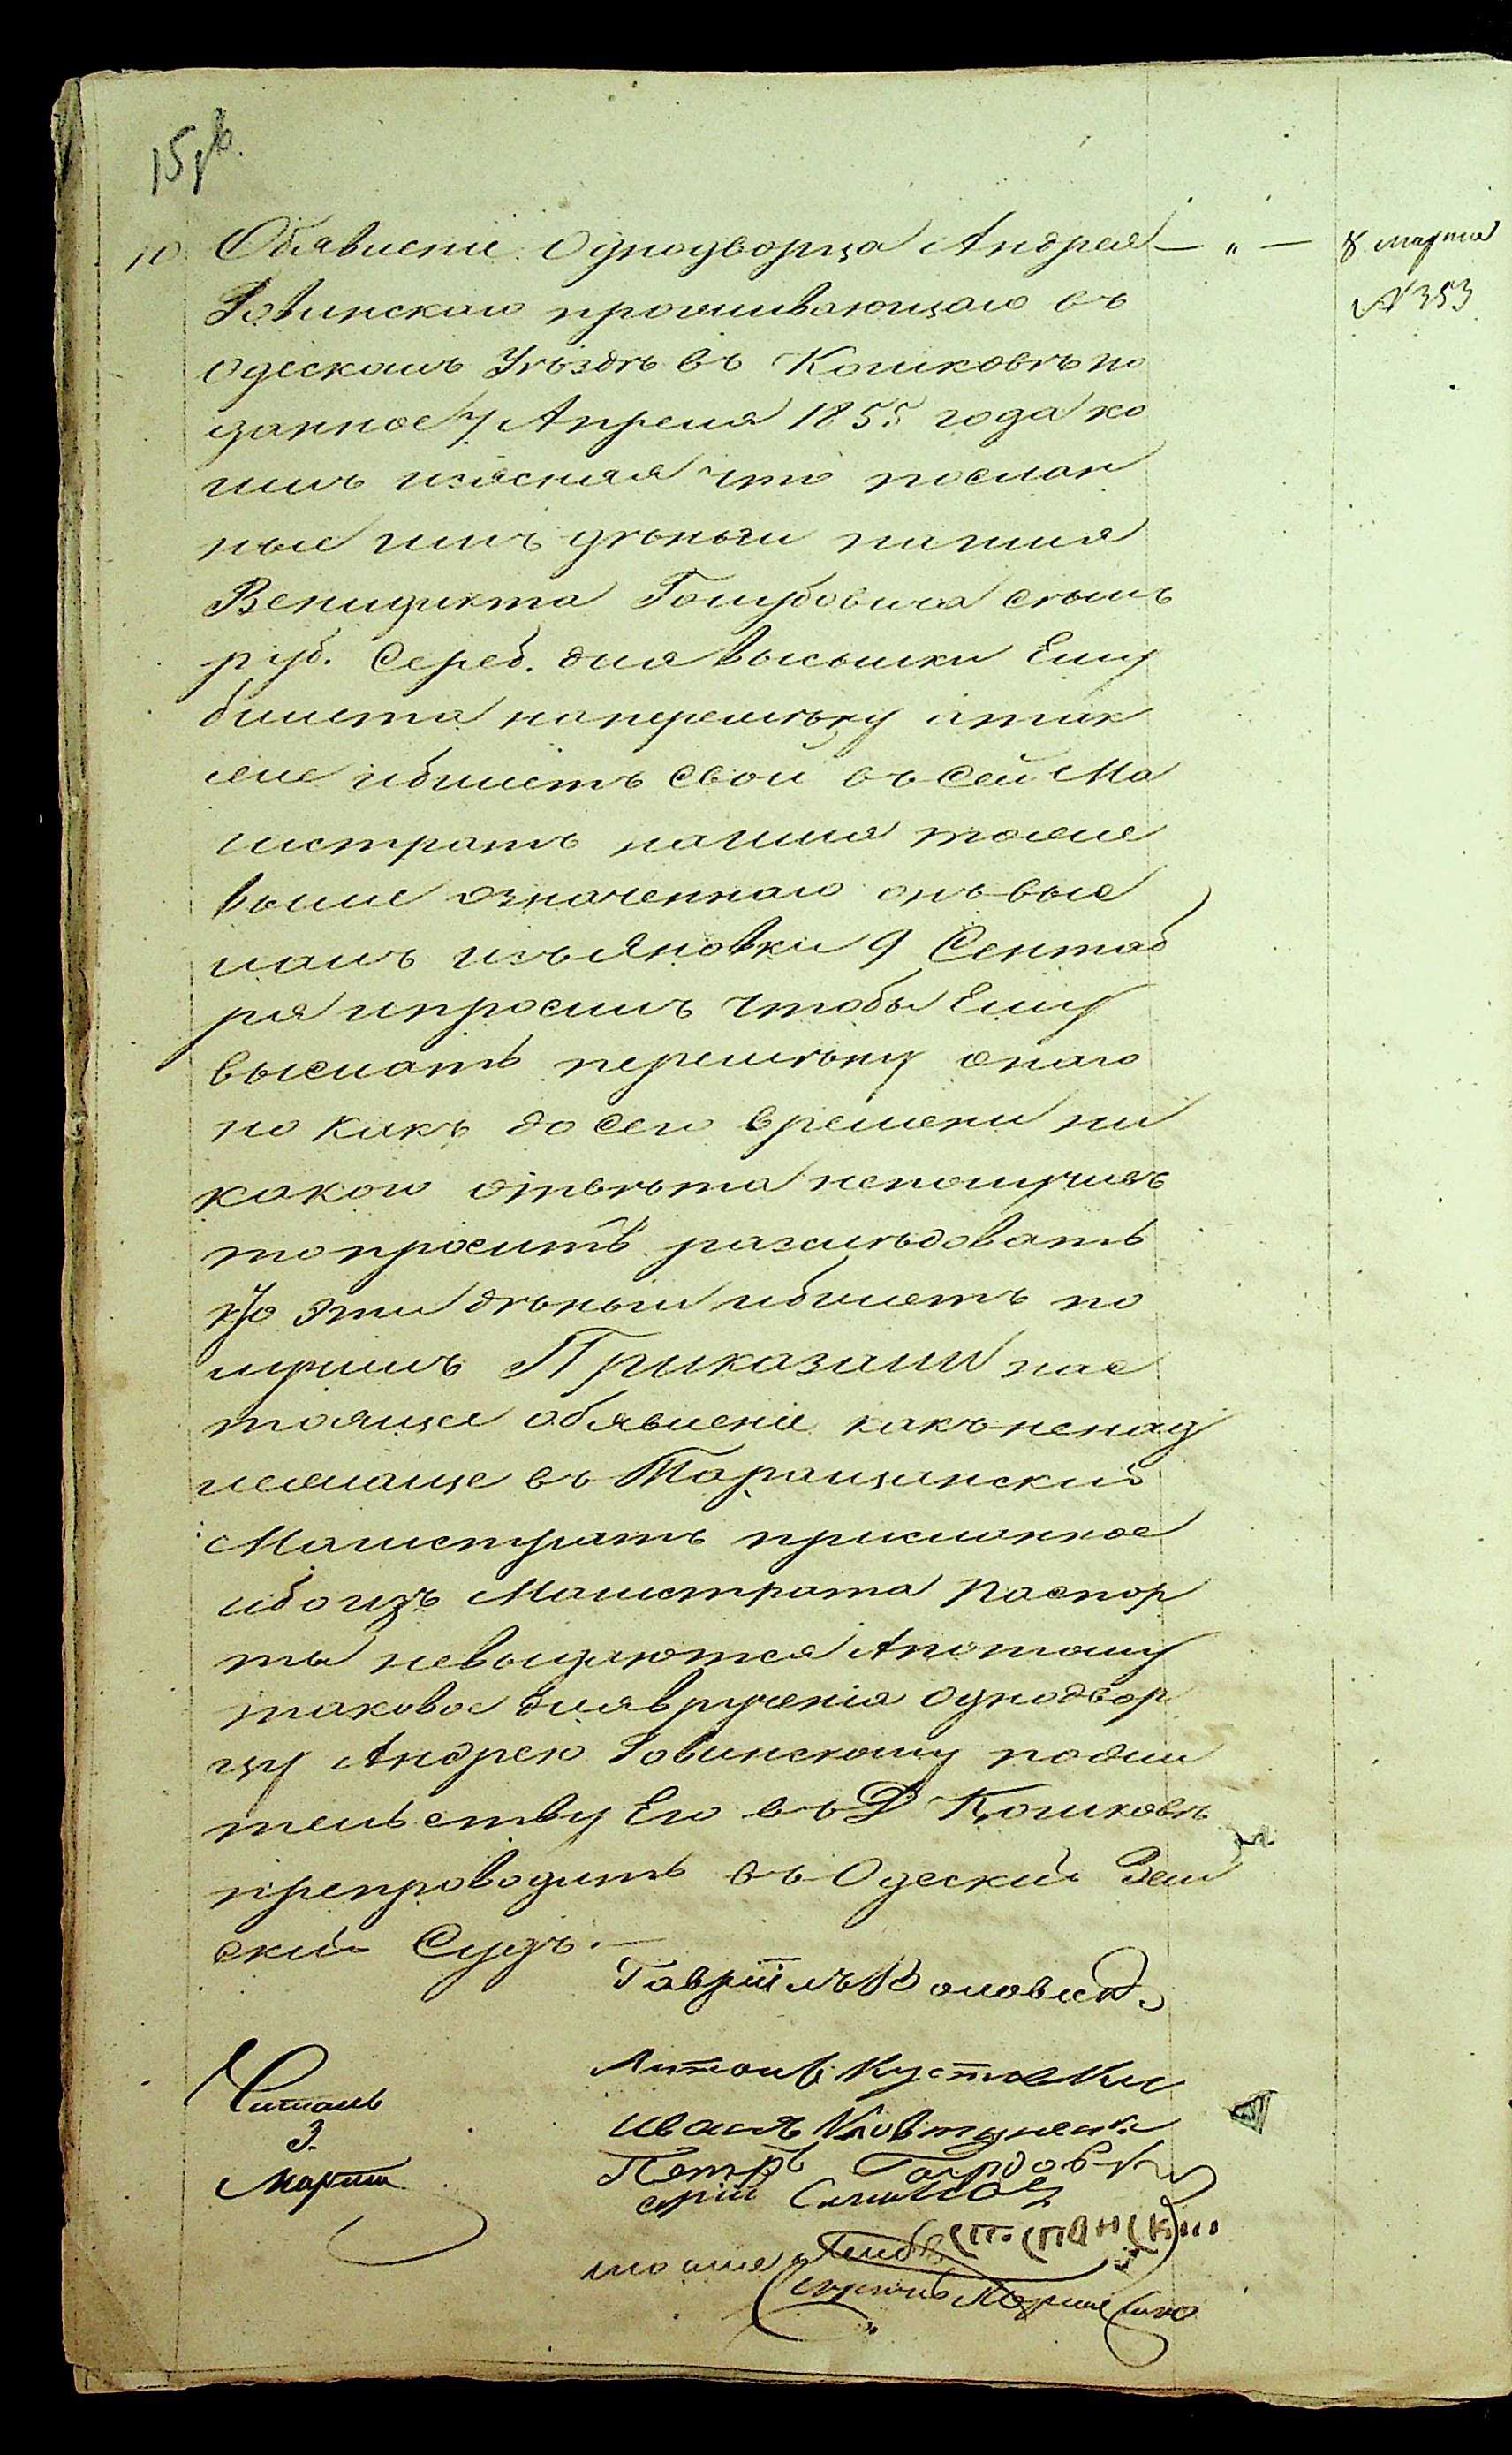 10 Обявленіе однодворца Андрея — „ — 8 марта
Ровинскаго проживающаго въ № 353
одескомъ Уѣздѣ въ Кошковѣ по
данное 7 Апреля 1855 года ко
имъ изясняя что послан
ные имъ дѣньги на имя
Венидикта Голубовича сѣмь
руб. Сереб. для высылки Ему
билета на перемѣну а так
же и билетъ свой въ сей Ма
гистратъ на имя тоже
выше означеннаго онъ выс
лалъ изъ Яновки 9 Сентяб
ря и просилъ чтобы Ему
выслать перемѣну онаго
но какъ до сего времени ни
какого отвѣта неполучилъ
то проситъ разслѣдовать
кто эти дѣньги и билетъ по
лучилъ Приказали нас
тоящее обявленіе какъ ненад
лежаще въ Таращанский
Магистратъ присланное
ибо изъ Магистрата паспор
ты невыдаются А потому
таковое для врученія однодвор
цу Андрею Ровинскому по жи
тельству Его въ Д Кошковѣ
препроводить въ Одеский Зем
ский Судъ. —
Гавріилъ
Антонъ
Читалъ Иванъ Ковтуненко
3 Петръ
Марта